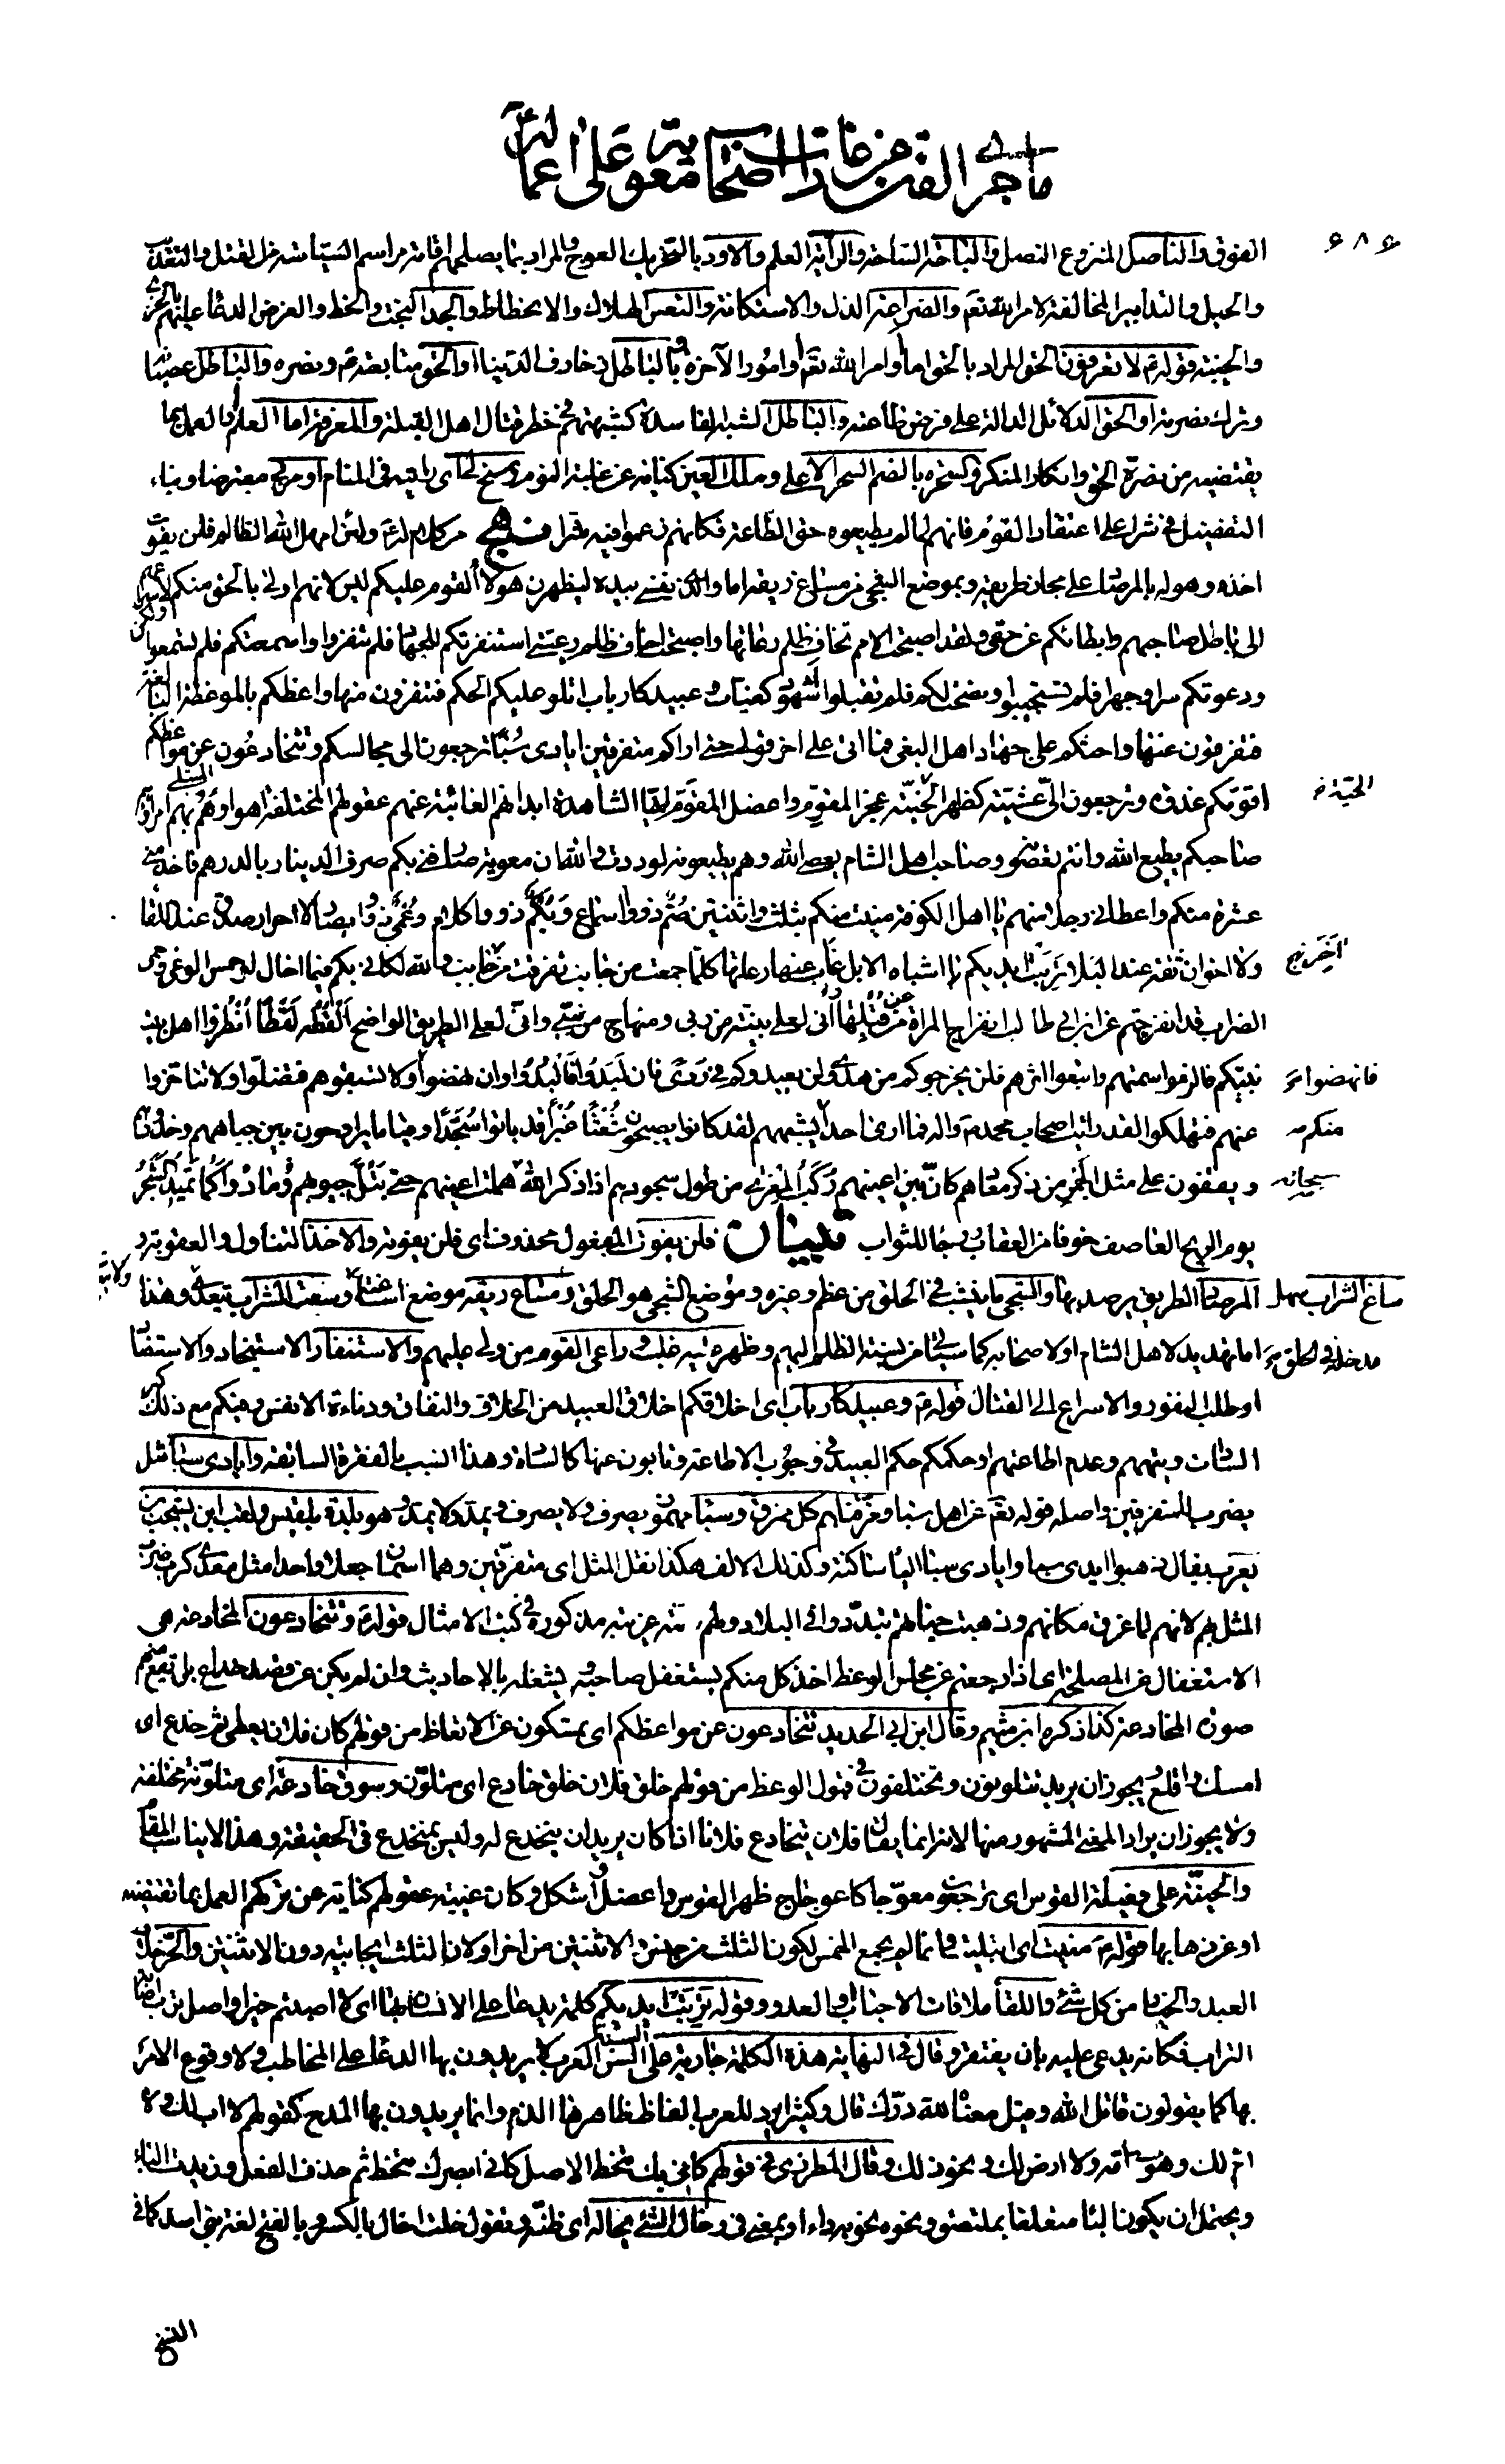 ما جرى من الفتن من غارات اصحاب معوية على اعماله
۶۸۶
الفوق والناصل المنزوع النصل والباحة الساحة والراية العلم والاود بالتحريك العوج والمراد بما يصلحهم اقامة مراسم السياسة من القتل والتعذيب
والحيل والتدابير المخالفة لامر الله تعم والضراعة الذل والاستكانة والتعس الهلاك والانحطاط والجد البخت والحظ والغرض الدعاء عليهم بالخزي
والخيبة قوله ع لا تعرفون الحق المراد بالحق اما اوامر الله تعم وامور الآخرة وبالباطل زخارف الدنيا او الحق متابعته ع ونصره والباطل عصيانه
وترك نصرته او الحق الدلائل الدالة على فرض طاعته والباطل الشبه الفاسدة كشبهتهم في خطر قتال اهل القبلة والمعرفة اما العلم او العمل بما
يقتضيه من نصرة الحق وانكار المنكر والسحرة بالضم السحر الاعلى وملك العين كناية عن غلبة النوم وسنح لي اى رايته في المنام او مر بي معترضا وبناء
التفضيل في شر على اعتقاد القوم فانهم لما لم يطيعوه حق الطاعة فكانهم زعموا فيه شرا نهج من كلام له ع ولئن امهل الله الظالم فلن يفوت
اخذه وهو له بالمرصاد على مجاز طريقه وبموضع الشجى من مساغ ريقه اما والذى نفسي بيده ليظهرن هؤلاء القوم عليكم ليس لانهم اولى بالحق منكم ولكن لاسراعهم
الى باطل صاحبهم وابطائكم عن حقي ولقد اصبحت الامم تخاف ظلم رعاتها واصبحت اخاف ظلم رعيتي استنفرتكم للجهاد فلم تنفروا واسمعتكم فلم تسمعوا
ودعوتكم سرا وجهرا فلم تستجيبوا ونصحت لكم فلم تقبلوا اشهود كغياب وعبيد كارباب اتلو عليكم الحكم فتنفرون منها واعظكم بالموعظة البالغة
فتفرقون عنها واحثكم على جهاد اهل البغي فما اتى على اخر قولى حتى اراكم متفرقين ايادى سبا ترجعون الى مجالسكم وتتخادعون عن مواعظكم
اقومكم غدوة وترجعون الى عشية كظهر الحنية عجز المقوم واعضل المقوم ايها الشاهدة ابدانهم الغائبة عنهم عقولهم المختلفة اهواؤهم المبتلى بهم امراؤهم
الحية خ
صاحبكم يطيع الله وانتم تعصونه وصاحب اهل الشام يعصى الله وهم يطيعونه لوددت والله ان معوية صارفني بكم صرف الدينار بالدرهم فاخذ مني
عشرة منكم واعطاني رجلا منهم يا اهل الكوفة منيت منكم بثلث واثنتين صم ذووا اسماع وبكم ذووا كلام وعمي ذووا ابصار لا احرار صدق عند اللقاء
ولا اخوان ثقة عند البلاء تربت ايديكم يا اشباه الابل غاب عنها رعاتها كلما جمعت من جانب تفرقت من جانب والله لكاني بكم فيما اخال لو حمس الوغى وحمى
آخر نهج
الضراب قد انفرجتم عن ابن ابي طالب انفراج المراة عن قبلها اني لعلى بينة من ربي ومنهاج من نبيي واني لعلى الطريق الواضح القطه لقطا انظروا اهل بيت
نبيكم فالزموا سمتهم واتبعوا اثرهم فلن يخرجوكم من هدى ولن يعيدوكم في ردى فان لبدوا فالبدوا وان نهضوا ولا تسبقوهم فتضلوا ولا تتاخروا
فانهضوا
عنهم فتهلكوا لقد رايت اصحاب محمد ص واله فما ارى احدا يشبههم لقد كانوا يصبحون شعثا غبرا قد باتوا سجدا وقياما يراوحون بين جباههم وخدودهم
منكم
ويقفون على مثل الجمر من ذكر معادهم كان بين اعينهم ركب المعزى من طول سجودهم اذا ذكر الله هملت اعينهم حتى تبل جيوبهم ومادوا كما يميد الشجر
سبحانه
يوم الريح العاصف خوفا من العقاب ورجاء للثواب تبيان فلن يفوت المفعول محذوف اى فلن يفوته والاخذ التناول والعقوبة و
المرصاد الطريق يرصد بها والشجى ما ينشب في الحلق من عظم وغيره وموضع الشجى هو الحلق ومساغ ريقه موضع اساغته وسغت الشراب يتعدى وهذا
ساغ الشراب سهل
ولا يتعدى
مدخله في الحلق
اما تهديد لاهل الشام او لاصحابه كما سياتي من نسبة الظلم اليهم وظهر عليه غلب وراعى القوم من ولى عليهم والاستنفار الاستنجاد والاستنصار
او طلب النفور والاسراع الى القتال قوله ع وعبيد كارباب اى اخلاقكم اخلاق العبيد من الخلاف والنفاق ودناءة الانفس وفيكم مع ذلك كبر
السادات وتيههم وعدم اطاعتهم او حكمكم حكم العبيد في وجوب الاطاعة وتابون عنها كالسادة وهذا انسب بالفقرة السابقة وايادى سبا مثل
يضرب للمتفرقين واصله قوله تعم عن اهل سبا ومزقناهم كل ممزق وسبا مهموز يصرف ولا يصرف ويمد ولا يمد وهو بلدة بلقيس ولقب ابن يشجب بن
يعرب يقال ذهبوا ايدى سبا وايادى سبا الياء ساكنة وكذلك الالف هكذا نقل المثل اى متفرقين وهما اسمان جعلا واحدا مثل معدى كرب ضرب
المثل بهم لانهم لما غرق مكانهم وذهبت جناتهم تبددوا في البلاد ولهم قصة غريبة مذكورة في كتب الامثال قوله ع وتتخادعون المخادعة هي
الاستغفال عن المصلحة اى اذا رجعتم عن مجلس الوعظ اخذ كل منكم يستغفل صاحبه ويشغله بالاحاديث وان لم يكن عن قصد خداع بل تقع منهم
صورة المخادعة كذا ذكره ابن ميثم وقال ابن ابي الحديد تتخادعون عن مواعظكم اى تمسكون عن الاتعاظ من قولهم كان فلان يعطى ثم خدع اى
امسك واقلع ويجوز ان يريد تتلونون وتختلفون في قبول الوعظ من قولهم خلق فلان خلق خادع اى متلون وسوق خادعة اى متلونة مختلفة
ولا يجوز ان يراد المعنى المشهور منها لانه انما يقال فلان يتخادع فلانا اذا كان يريد ان ينخدع له وليس بمنخدع في الحقيقة وهذا لا يناسب المقام
والحنية على فعيلة القوس اى ترجعون معوجا كاعوجاج ظهر القوس واعضل اى اشكل وكان غيبته عقولهم كناية عن تركهم العمل بما تقتضيه
او عن ذهابها قوله ع منيت اى ابتليت وانما لم يجمع الخمس لكون الثلث من جنس والاثنتين من اخر او لان الثلث ايجابية دون الاثنتين والحر خلاف
العبد والخيار من كل شئ واللقاء ملاقات الاحباب او العدو وقوله تربت ايديكم كلمة يدعى على الانسان بها اى لا اصبتم خيرا واصل ترب اصابه
التراب فكانه يدعى عليه بان يفتقر وقال في النهاية هذه الكلمة جارية على السنة العرب لا يريدون بها الدعاء على المخاطب ولا وقوع الامر
بها كما يقولون قاتل الله وقيل معناه لله درك قال وكثيرا يرد للعرب الفاظ ظاهرها الذم وانما يريدون بها المدح كقولهم لا اب لك ولا
ام لك وهوت امه ولا ارض لك ونحو ذلك وقال المطرزى في قولهم كاني بك تنحط الاصل كاني ابصرك تنحط ثم حذف الفعل وزيدت الباء
ويحتمل ان يكون الباء متعلقا بملتصق ونحوه نحو به داء او بمعنى في وخال الشئ يخاله اى ظنه وتقول خلت اخال بالكسر وبالفتح لغة بني اسد كما في
النسخ